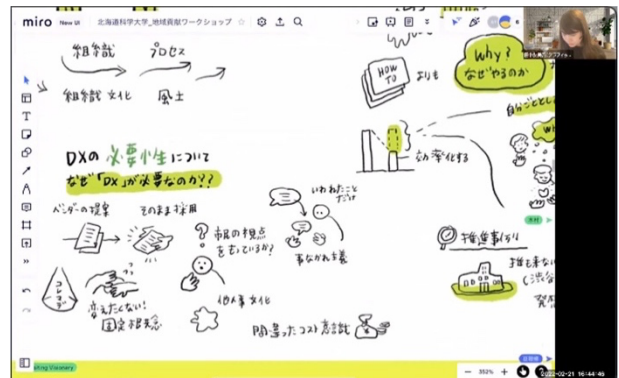 miro New UI 北海道科学大学_地域貢献ワークショップ
組織 プロセス
組織文化 風土
HOW TO よりも
Why?
なぜやるのか
自分ごととし
効率化する
DXの必要性について
なぜ「DX」が必要なのか??
ベンダーの提案 そのまま採用
いわれたことだけ
市民の視点をもっているか?
事なかれ主義
変えたくない!
固定概念
他人事文化
間違ったコスト意識
推進事例
誰も来ない
(渋谷
352%
2022-02-21 16:44:45